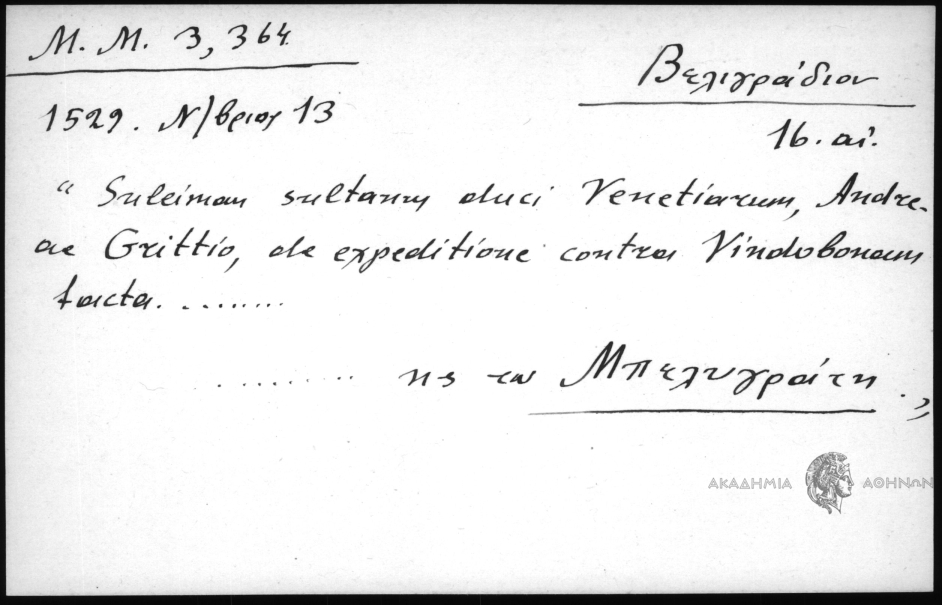 M. M. 3, 364
Βελιγράδιον
1529. Ν/βριος 13
16. αἰ.
“ Suleiman sultanus duci Venetiarum, Andre-
ae Grittio, de expeditione contra Vindobonam
facta. .........
.......... ης τω Μπελυγράτη . „
ΑΚΑΔΗΜΙΑ ΑΘΗΝΩΝ